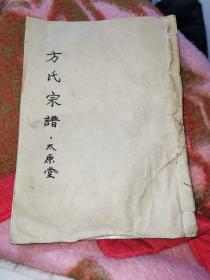 方氏宗譜·太原堂